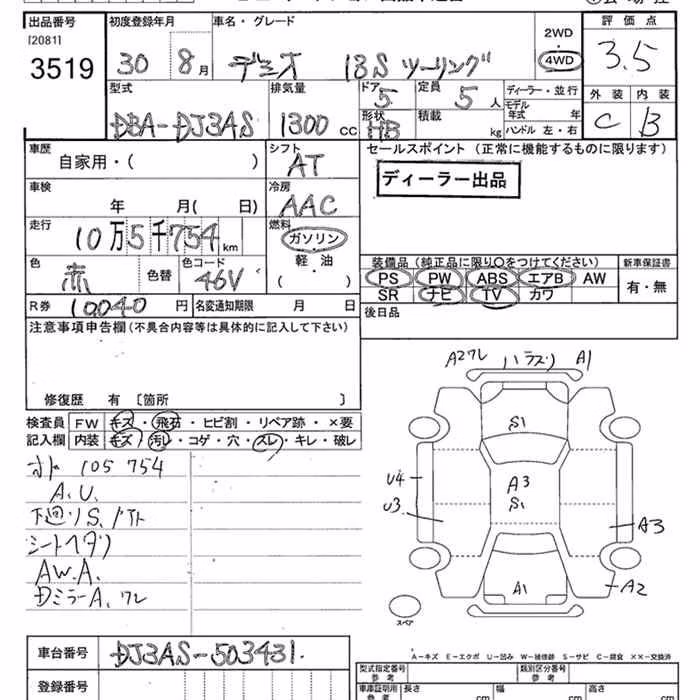 出品番号 初度登録年月 車名・グレード 評価点
[2081]
3519 30 8月 デミオ 13S ツーリング 2WD 4WD 3.5
型式 排気量 ドア 5 定員 5人 ディーラー・並行 外装 内装
DBA-DJ3AS 1300cc 形状 HB 積載 kg モデル年式 年 C B
ハンドル 左・右
車歴 シフト セールスポイント(正常に機能するものに限ります)
自家用・( ) AT
ディーラー出品
車検 冷房
年 月( 日) AAC
走行 燃料
10万5千754km ガソリン
色 色コード 軽・油 装備品(純正品に限り○をつけてください) 新車保証書
赤 色替 46V ( ) PS PW ABS エアB AW 有・無
SR ナビ TV カワ
R券 10040円 名変通知期限 月 日 後日品
注意事項申告欄(不具合内容等は具体的に記入して下さい)
修復歴 有 〔箇所 〕
検査員 FW キズ・飛石・ヒビ割・リペア跡・×要
記入欄 内装 キズ・汚レ・コゲ・穴・スレ・キレ・破レ
A2ワレ ハラスリ A1
S1
オド 105754
A.U.
下廻りS.
シートヘタリ
AW.A.
DミラーA.ワレ
U4 A3
U3 S1 A3
A1 A2
スペア
車台番号 DJ3AS-503431.
A-キズ E-エクボ U-凹み W-補修跡 S-サビ C-腐食 ××-交換済
登録番号 型式指定番号 参考 類別区分番号 参考
車庫証明用 参考 長さ cm 幅 cm 高さ cm